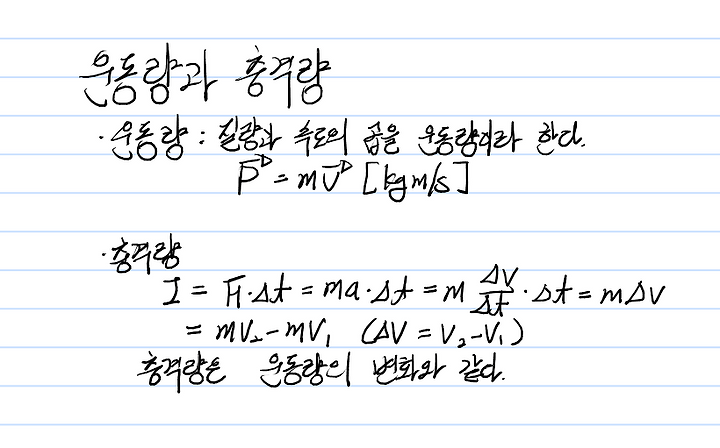 운동량과 충격량
· 운동량 : 질량과 속도의 곱을 운동량이라 한다.
P⃗ = mv⃗ [kgm/s]
· 충격량
I = F·Δt = ma·Δt = m ΔV/Δt · Δt = mΔV
= mV₂-mV₁ (ΔV = V₂-V₁)
충격량은 운동량의 변화와 같다.